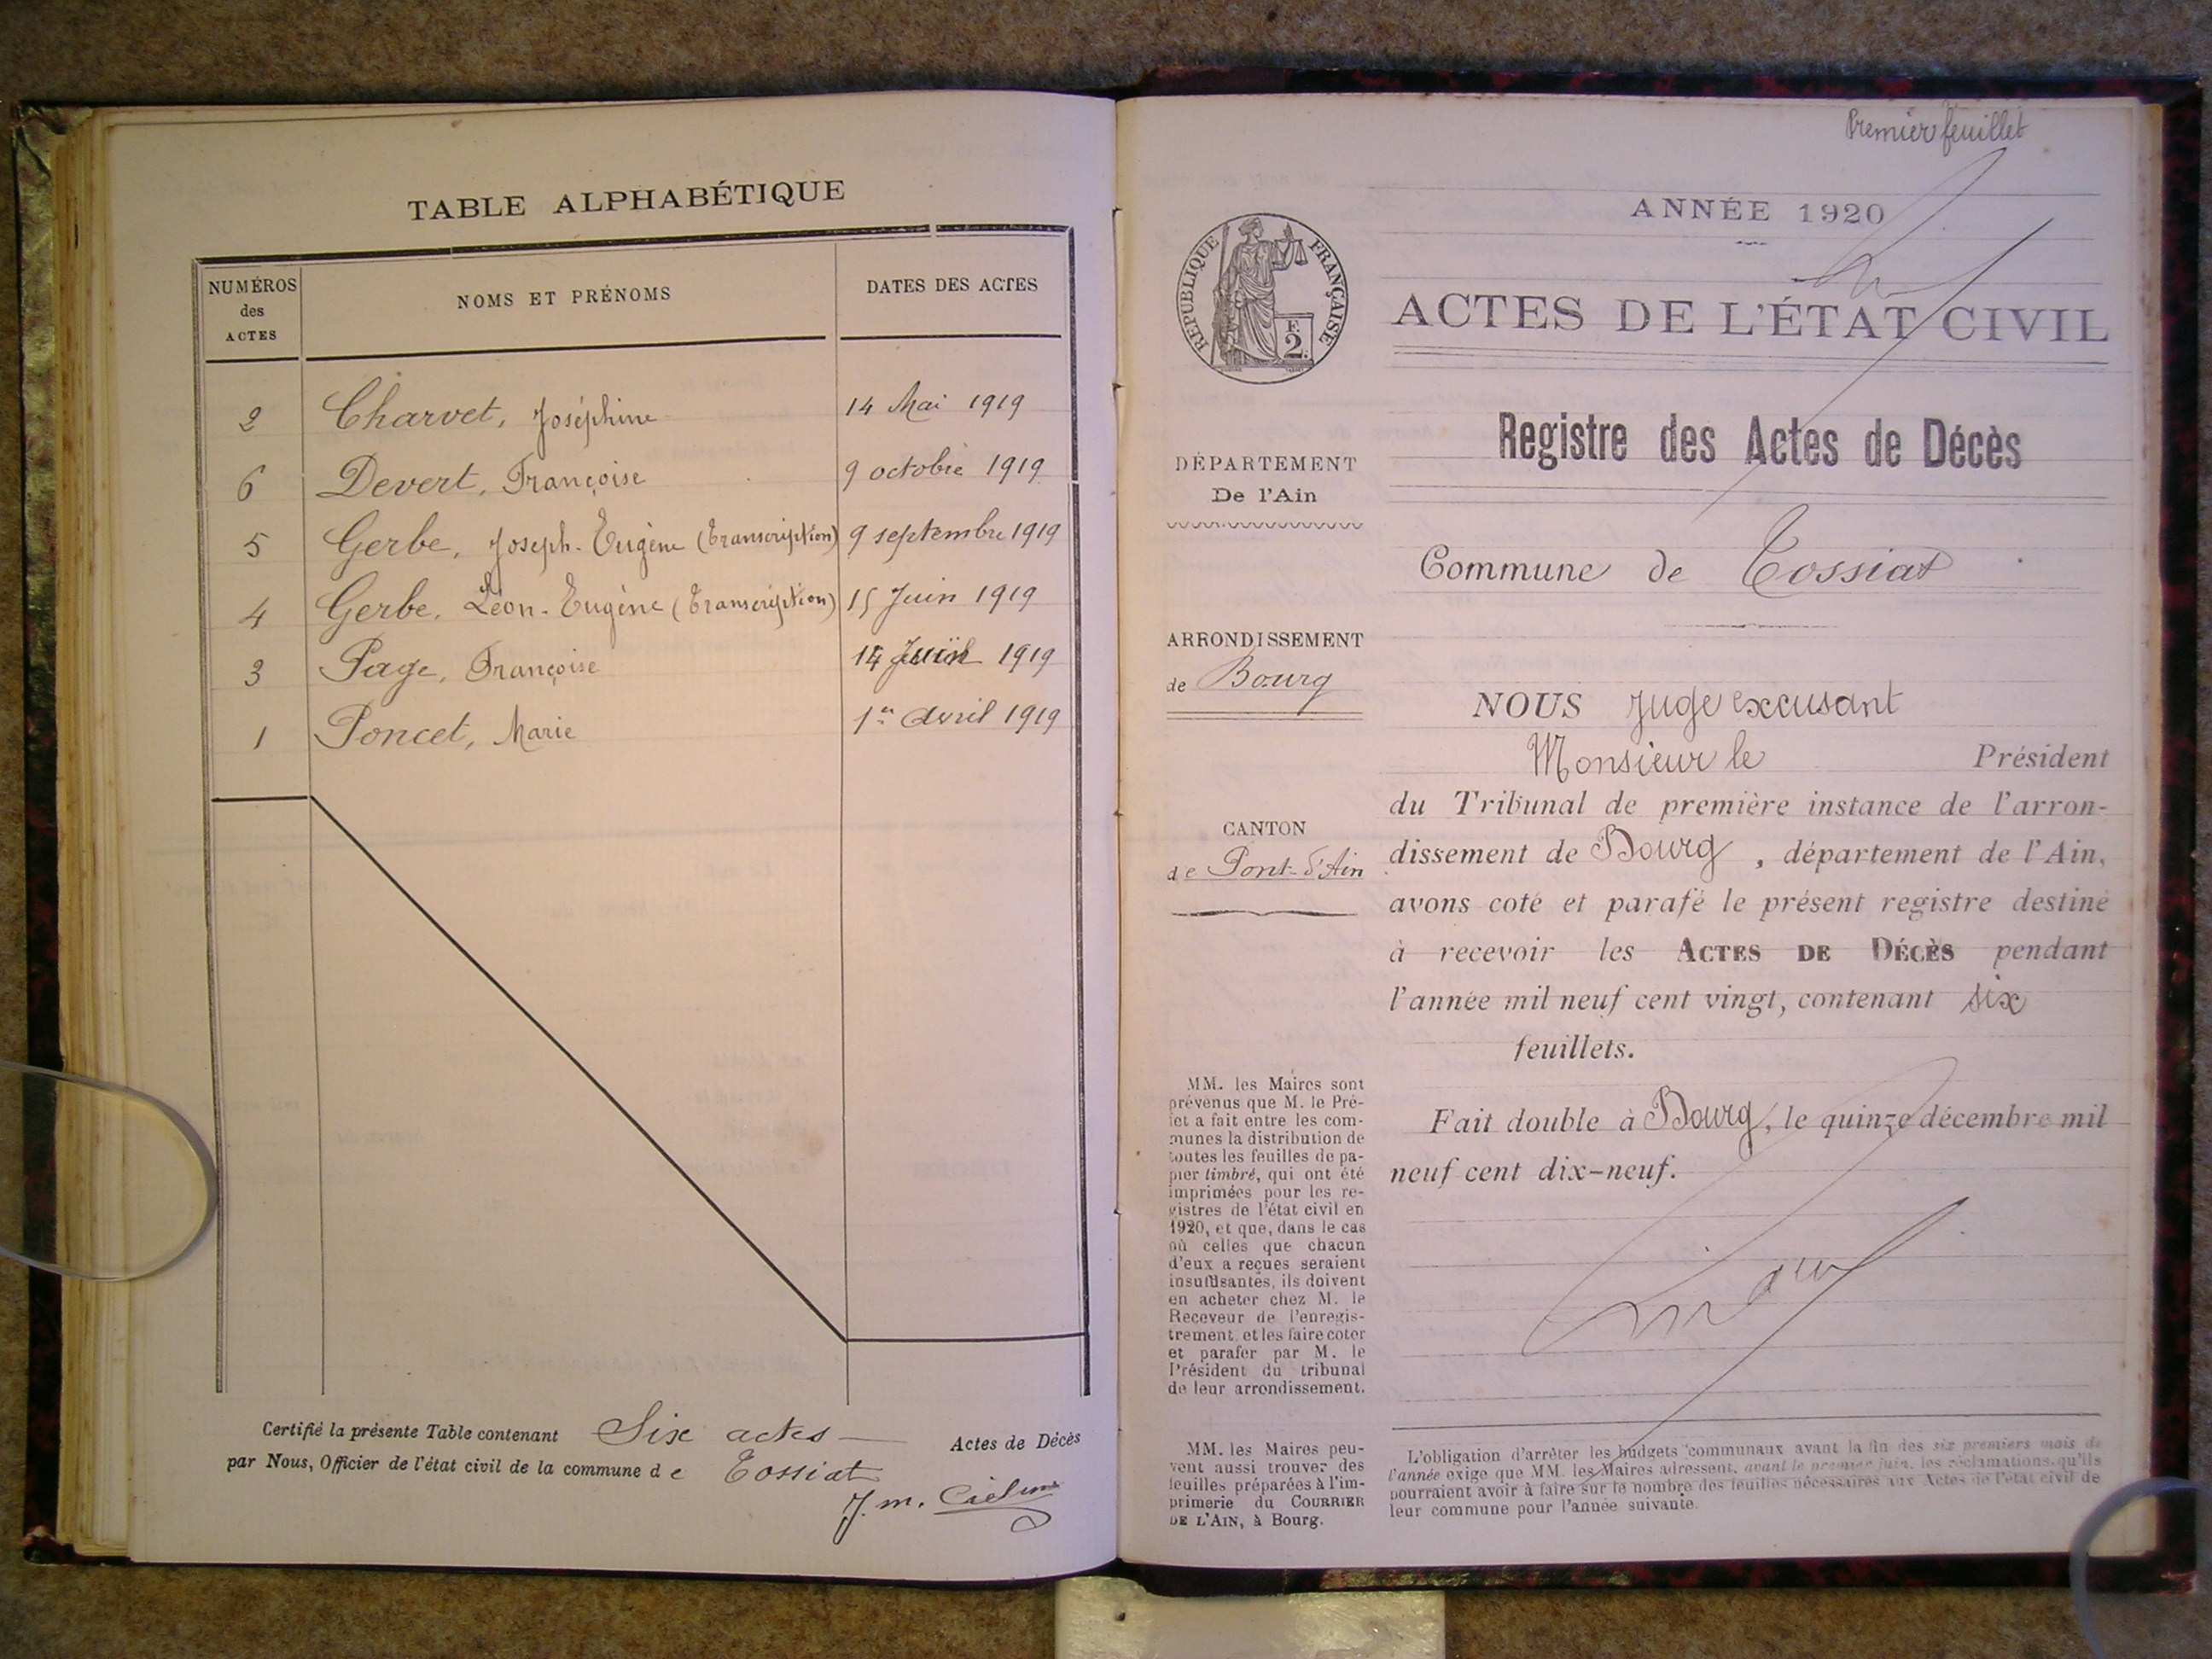 TABLE ALPHABÉTIQUE
NUMÉROS
des
ACTES
NOMS ET PRÉNOMS
DATES DES ACTES
2 Charvet, Joséphine 14 Mai 1919
6 Devert, Françoise 9 octobre 1919
5 Gerbe, Joseph-Eugène (Transcription) 9 septembre 1919
4 Gerbe, Léon-Eugène (Transcription) 15 Juin 1919
3 Page, Françoise 14 1919
1 Poncet, Marie 1er Avril 1919
Certifié la présente Table contenant Six actes Actes de Décès
par Nous, Officier de l'état civil de la commune de Tossiat
J. m.
Premier feuillet
ANNÉE 1920
ACTES DE L'ÉTAT CIVIL
RÉPUBLIQUE FRANÇAISE
F.
2.
Registre des Actes de Décès
DÉPARTEMENT
De l'Ain
Commune de Tossiat
ARRONDISSEMENT
de Bourg
CANTON
de Pont-d'Ain
NOUS Juge excusant
Monsieur le Président
du Tribunal de première instance de l'arron-
dissement de Bourg, département de l'Ain,
avons coté et parafé le présent registre destiné
à recevoir les ACTES DE DÉCÈS pendant
l'année mil neuf cent vingt, contenant six
feuillets.
Fait double à Bourg, le quinze décembre mil
neuf cent dix-neuf.
MM. les Maires sont
prévenus que M. le Pré-
fet a fait entre les com-
munes la distribution de
toutes les feuilles de pa-
pier timbré, qui ont été
imprimées pour les re-
gistres de l'état civil en
1920, et que, dans le cas
où celles que chacun
d'eux a reçues seraient
insuffisantes, ils doivent
en acheter chez M. le
Receveur de l'enregis-
trement, et les faire coter
et parafer par M. le
Président du tribunal
de leur arrondissement.
MM. les Maires peu-
vent aussi trouver des
feuilles préparées à l'im-
primerie du COURRIER
DE L'AIN, à Bourg.
L'obligation d'arrêter les budgets communaux avant la fin des six premiers mois de
l'année exige que MM. les Maires adressent, avant le premier juin, les réclamations qu'ils
pourraient avoir à faire sur le nombre des feuilles nécessaires aux Actes de l'état civil de
leur commune pour l'année suivante.